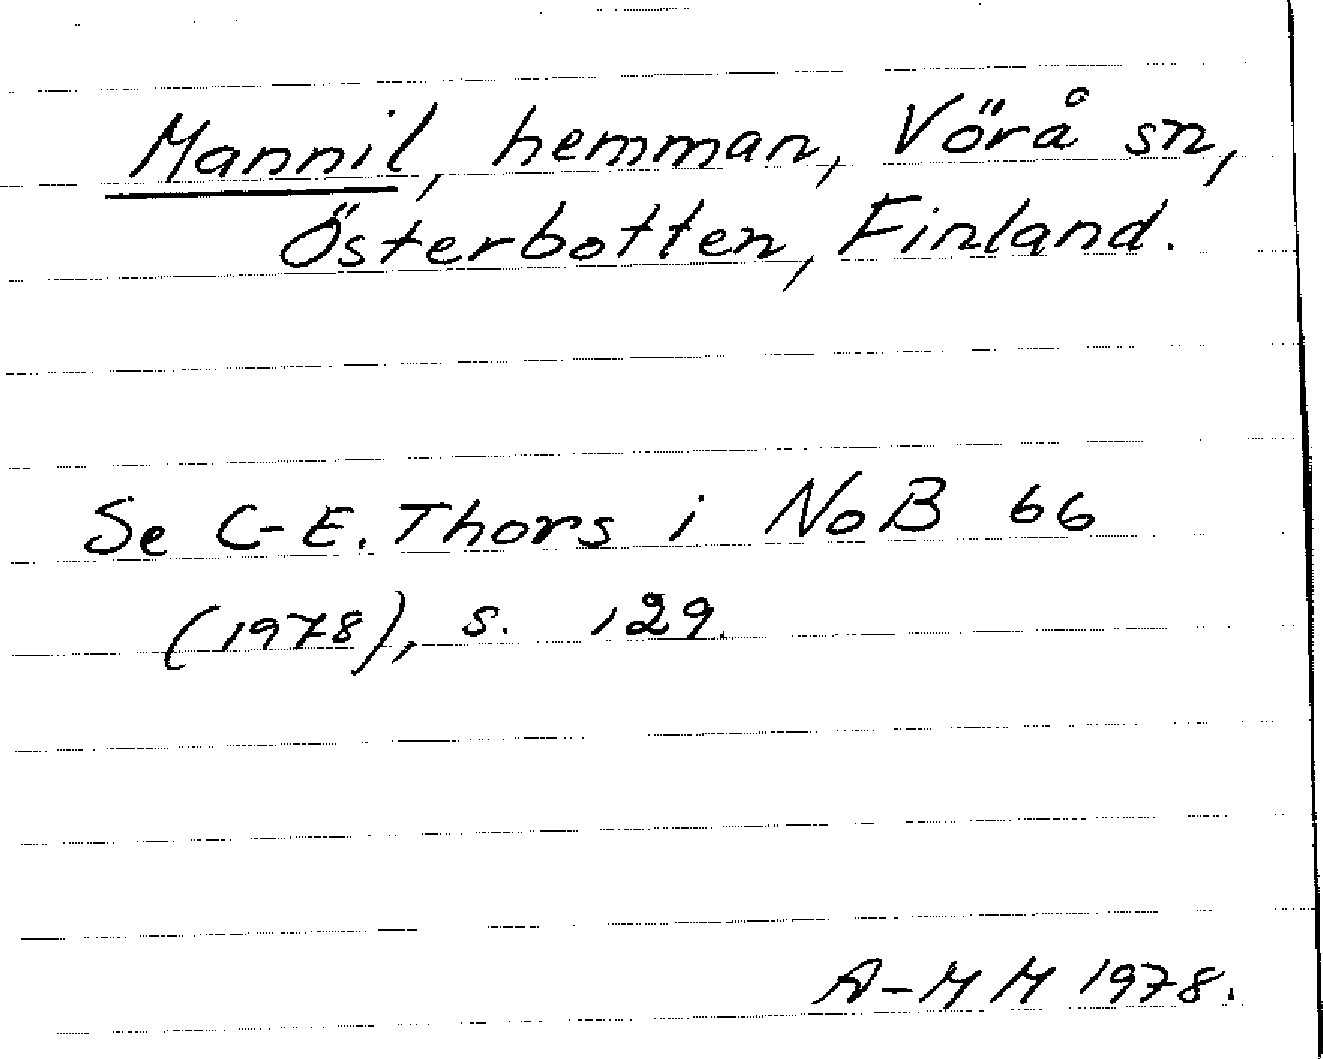 Mannil, hemman, Vörå sn,
Österbotten, Finland.
Se C-E. Thors i NoB 66
(1978), s. 129.
A-MM 1978.